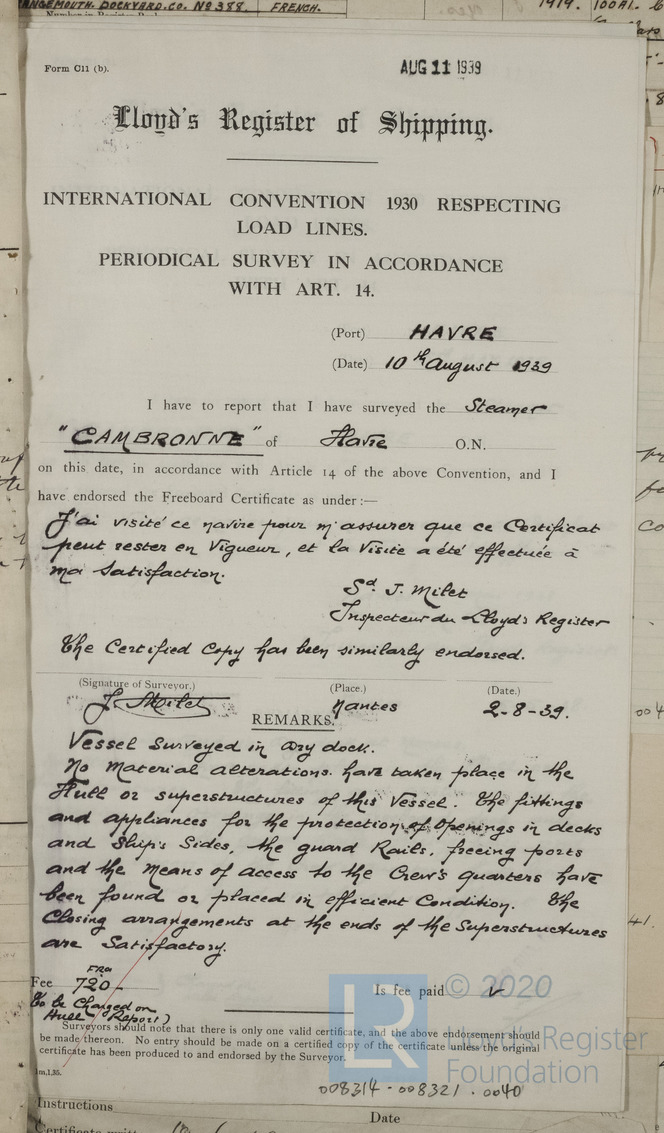 GRANGEMOUTH. DOCKYARD. CO. No 388. FRENCH. 1919. 100A1.
Form C11 (b). AUG 11 1939
Lloyd's Register of Shipping.
INTERNATIONAL CONVENTION 1930 RESPECTING
LOAD LINES.
PERIODICAL SURVEY IN ACCORDANCE
WITH ART. 14.
(Port) HAVRE
(Date) 10th August 1939
I have to report that I have surveyed the Steamer
"CAMBRONNE" of Havre O.N.
on this date, in accordance with Article 14 of the above Convention, and I
have endorsed the Freeboard Certificate as under:—
J'ai visité ce navire pour m'assurer que ce Certificat
peut rester en Vigueur, et la Visite a été effectuée à
ma Satisfaction.
Sd. J. Milet
Inspecteur du Lloyd's Register
The Certified Copy has been similarly endorsed.
(Signature of Surveyor.) (Place.) (Date.)
J. Milet Nantes 2-8-39.
REMARKS.
Vessel Surveyed in Dry dock.
No Material alterations. have taken place in the
Hull or superstructures of this Vessel. The fittings
and appliances for the protection of Openings in decks
and Ship's Sides, the guard Rails, freeing ports
and the Means of access to the Crew's quarters have
been found or placed in efficient Condition. The
Closing arrangements at the ends of the Superstructures
are Satisfactory.
Fee FRs 720- Is fee paid
To be Charged on
Hull Report)
Surveyors should note that there is only one valid certificate, and the above endorsement should
be made thereon. No entry should be made on a certified copy of the certificate unless the original
certificate has been produced to and endorsed by the Surveyor.
1m,1,35.
LR © 2020
Lloyd's Register
Foundation
008314-008321.0040
Instructions Date